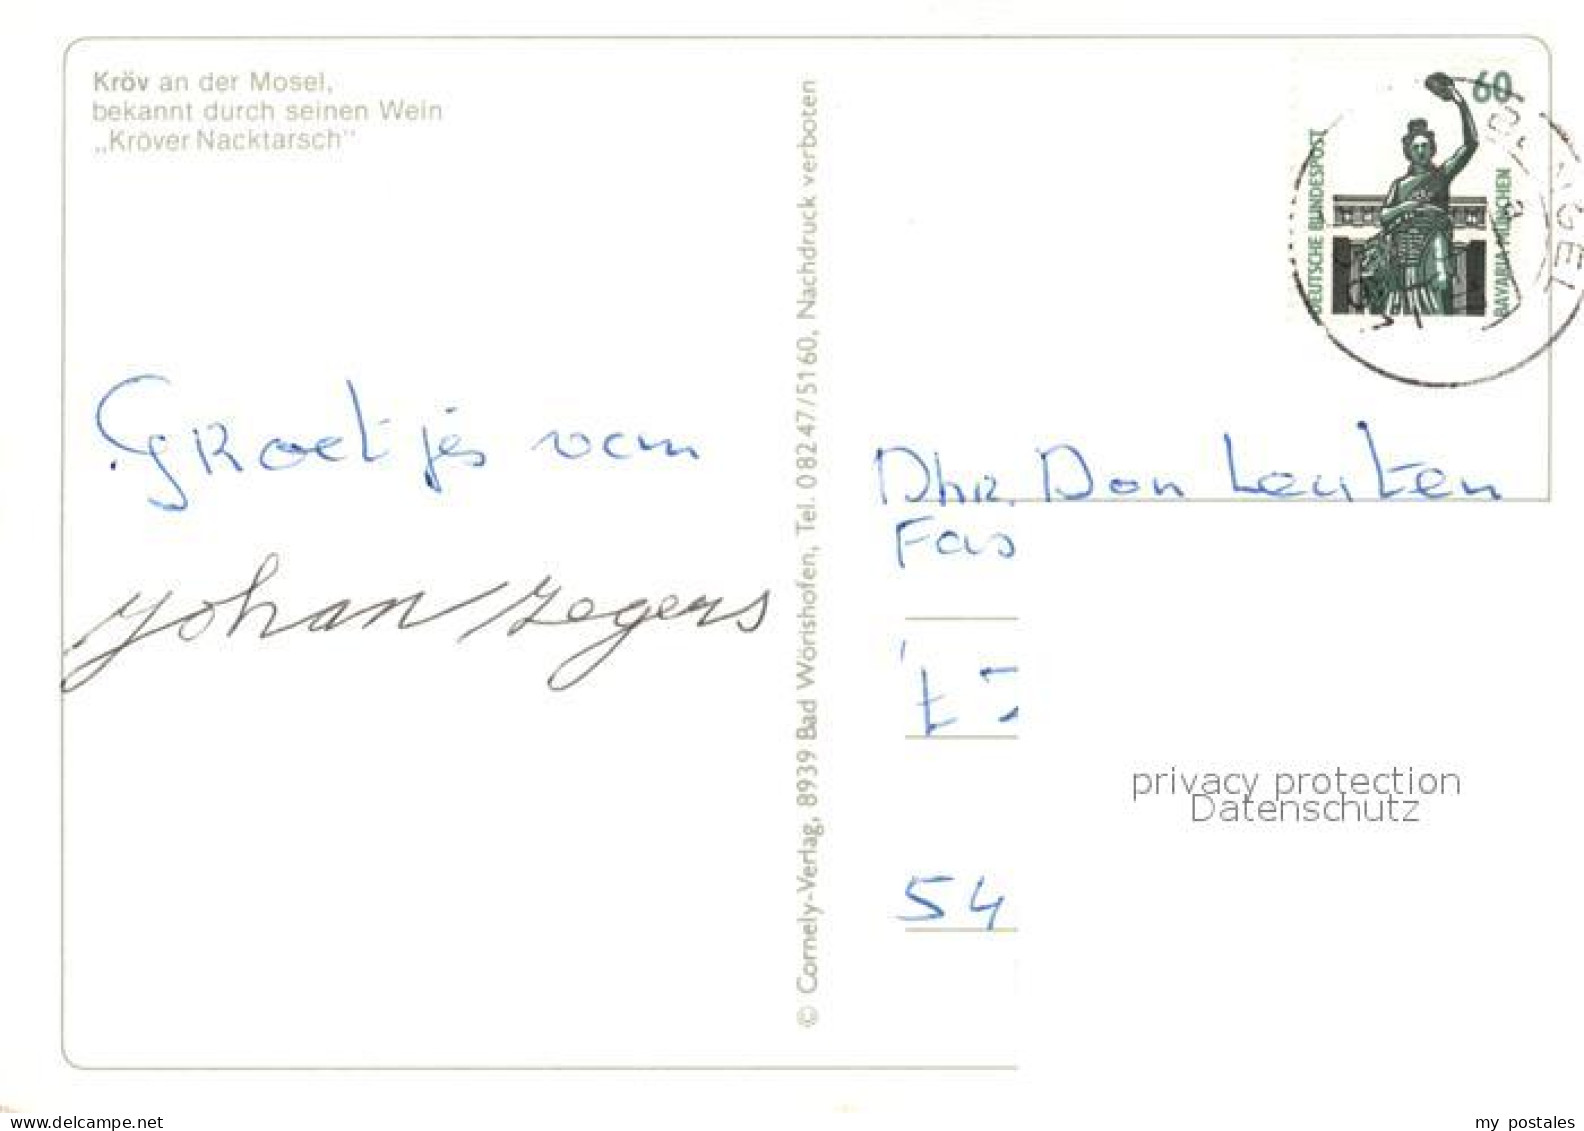 Kröv an der Mosel,
bekannt durch seinen Wein
„Kröver Nacktarsch“
Groetjes van
Johan Zegers
© Cornely-Verlag, 8939 Bad Wörishofen, Tel. 08247/5160, Nachdruck verboten
60
DEUTSCHE BUNDESPOST
BAVARIA MÜNCHEN
Dhr. Don Leuten
Fas
't
54
privacy protection
Datenschutz
www.delcampe.net
my postales